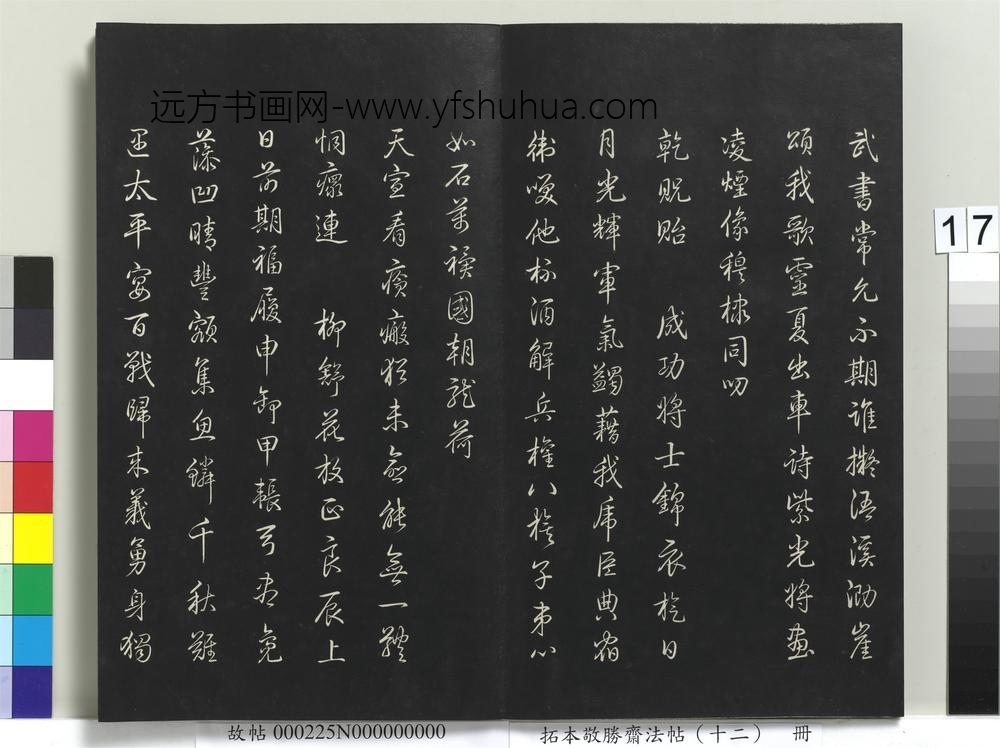 武書常允不期誰擬浯溪泐崖
頌我歌靈夏出車詩紫光將畫
凌煙像穆棣同吻
乾貺貽 成功將士錦衣旋日
月光輝軍氣蠲藉我虎臣典宿
衛嗤他杯酒解兵權八旗子弟心
如石萬禩國朝龍荷
天宣看廣廒猶未無一
恫瘝連 柳舒花放正良辰上
日前期福履申卸甲韔弓有
藻凹晴豐額集魚鱗千秋難
太平宴百戰歸來義勇身獨
远方书画网-www.yfshuhua.com
17
故帖 000225N000000000
拓本敬勝齋法帖（十二） 冊